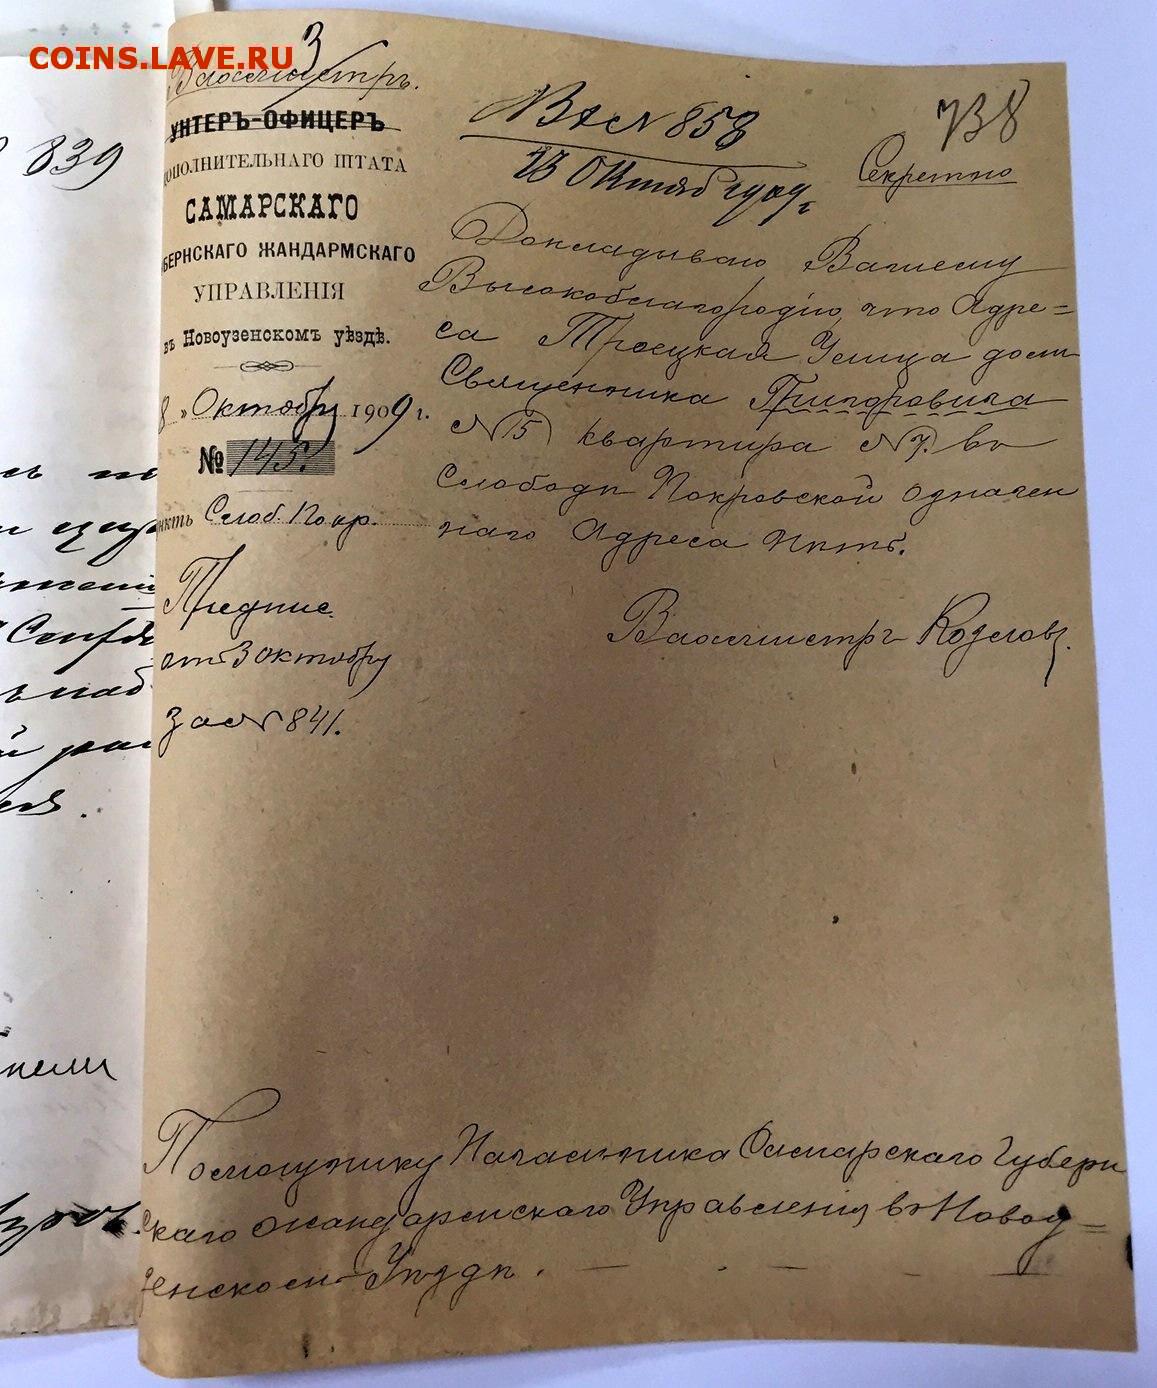 COINS.LAVE.RU
839
Вахмистръ.
3
УНТЕРЪ-ОФИЦЕРЪ
ДОПОЛНИТЕЛЬНАГО ШТАТА
САМАРСКАГО
БЕРНСКАГО ЖАНДАРМСКАГО
УПРАВЛЕНІЯ
въ Новоузенскомъ уѣздѣ.
8 „ Октября 1909 г.
№ 145.
нктъ Слоб. Покр.
Предпис.
отъ 3 октября
за № 841.
Вх № 858
13 Октяб 1909 г
738
Секретно
Докладываю Вашему
Высокоблагородію, что Адре=
са Троецкая Улица домъ
Священника Григоровича
№ 15 квартира № 7. въ
Слободѣ Покровской означен
наго Адреса нѣтъ.
Вахмистръ Козловъ.
Помощнику Начальника Самарскаго Губерн
скаго жандармскаго Управленія въ Новоу=
зенскомъ Уѣздѣ.